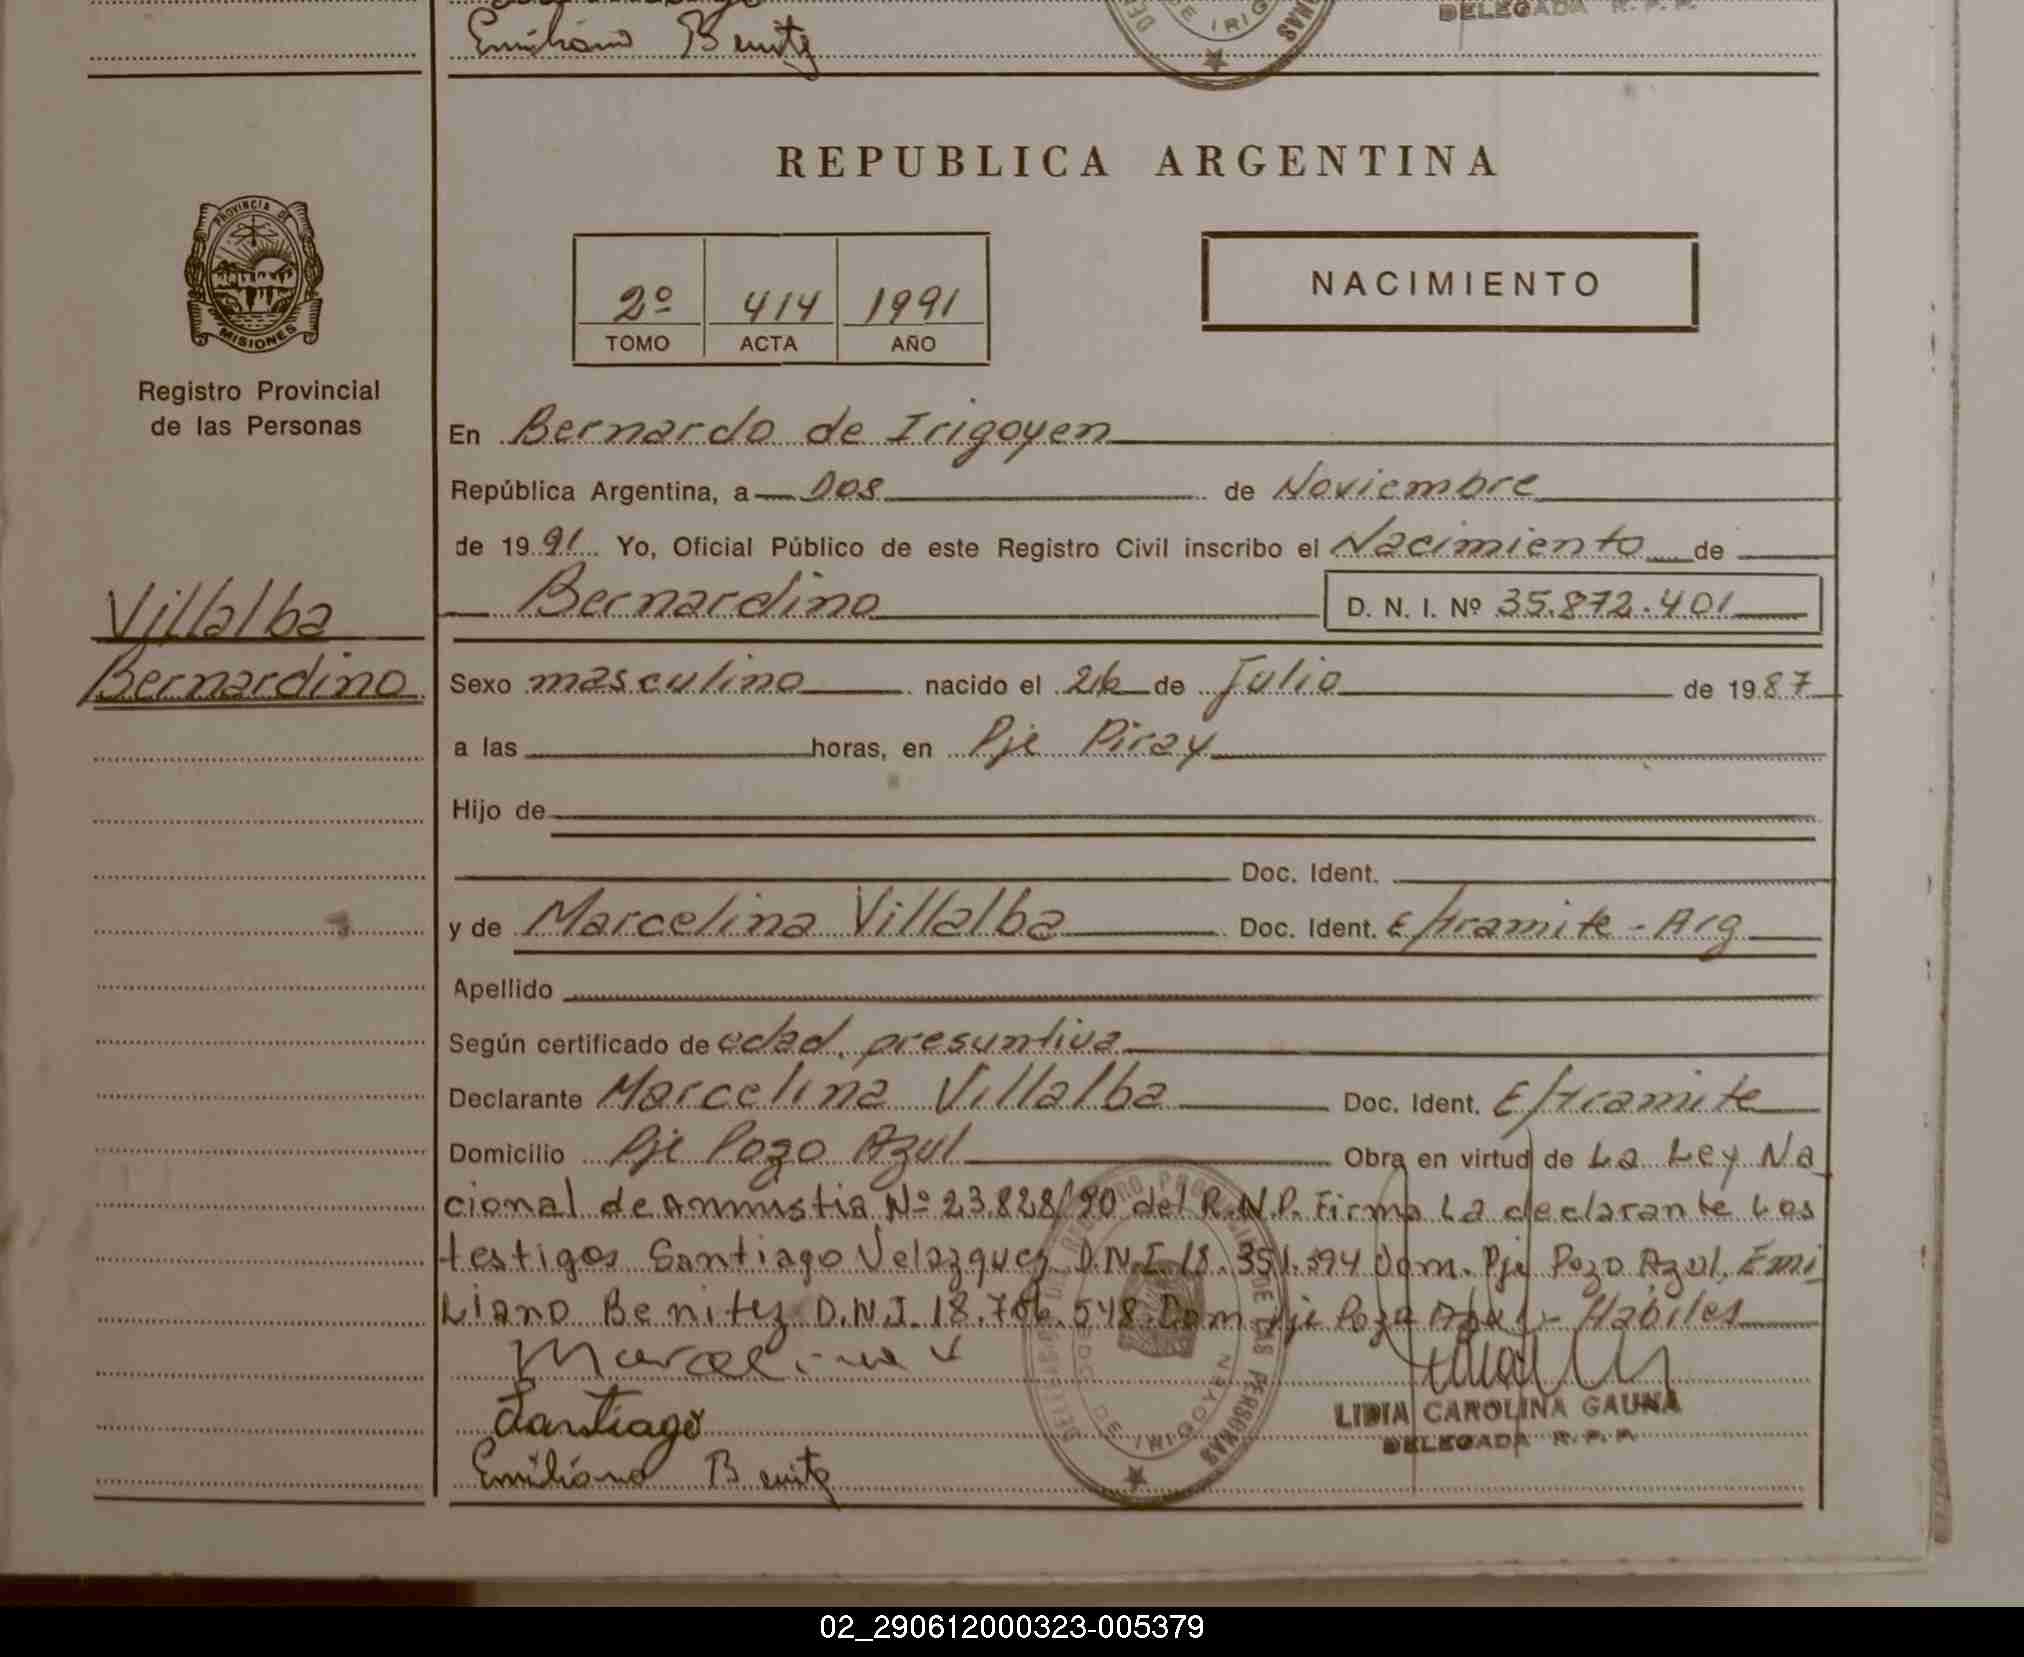 Emiliano Benitz
DE IRIG
DELEGADA R. P. P.
REPUBLICA ARGENTINA
PROVINCIA DE
MISIONES
Registro Provincial
de las Personas
2º 414 1991
TOMO ACTA AÑO
NACIMIENTO
En Bernardo de Irigoyen
República Argentina, a Dos de Noviembre
de 1991 Yo, Oficial Público de este Registro Civil inscribo el Nacimiento de
Villalba
Bernardino
Bernardino D. N. I. Nº 35.872.401
Sexo masculino nacido el 26 de Julio de 1987
a las horas, en Pje Piray
Hijo de
Doc. Ident.
y de Marcelina Villalba Doc. Ident. E/tramite - Arg
Apellido
Según certificado de edad presuntiva
Declarante Marcelina Villalba Doc. Ident. E/tramite
Domicilio Pje Pozo Azul Obra en virtud de La Ley Na
cional de Amnistia Nº 23.828/90 del R.N.P. Firma La declarante Los
testigos Santiago Velazquez D.N.I. 18.351.594 Dom. Pje Pozo Azul, Emi
Liano Benitez D.N.I. 18.706.548 Dom Pje Pozo Azul - Habiles
Marcelina V
Santiago
Emiliano Benitz
DE IRIGOYEN
DE LAS PERSONAS
LIDIA CAROLINA GAUNA
DELEGADA R. P. P.
02_290612000323-005379